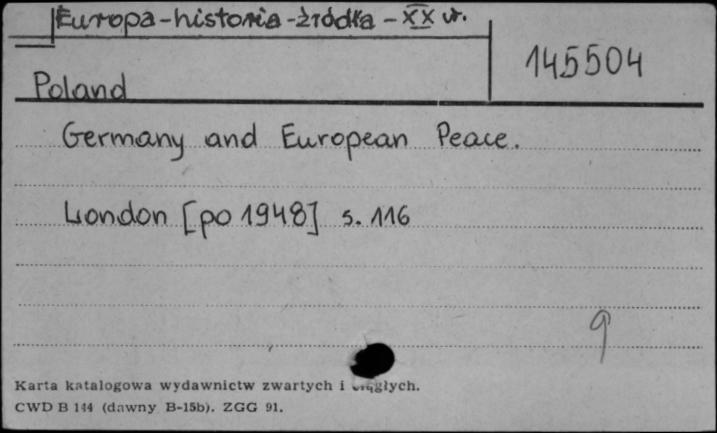 Europa-historia-źródła-XX w.
145504
Poland
Germany and European Peace.
London [po 1948] s. 116
9
Karta katalogowa wydawnictw zwartych i ciągłych.
CWD B 144 (dawny B-15b). ZGG 91.